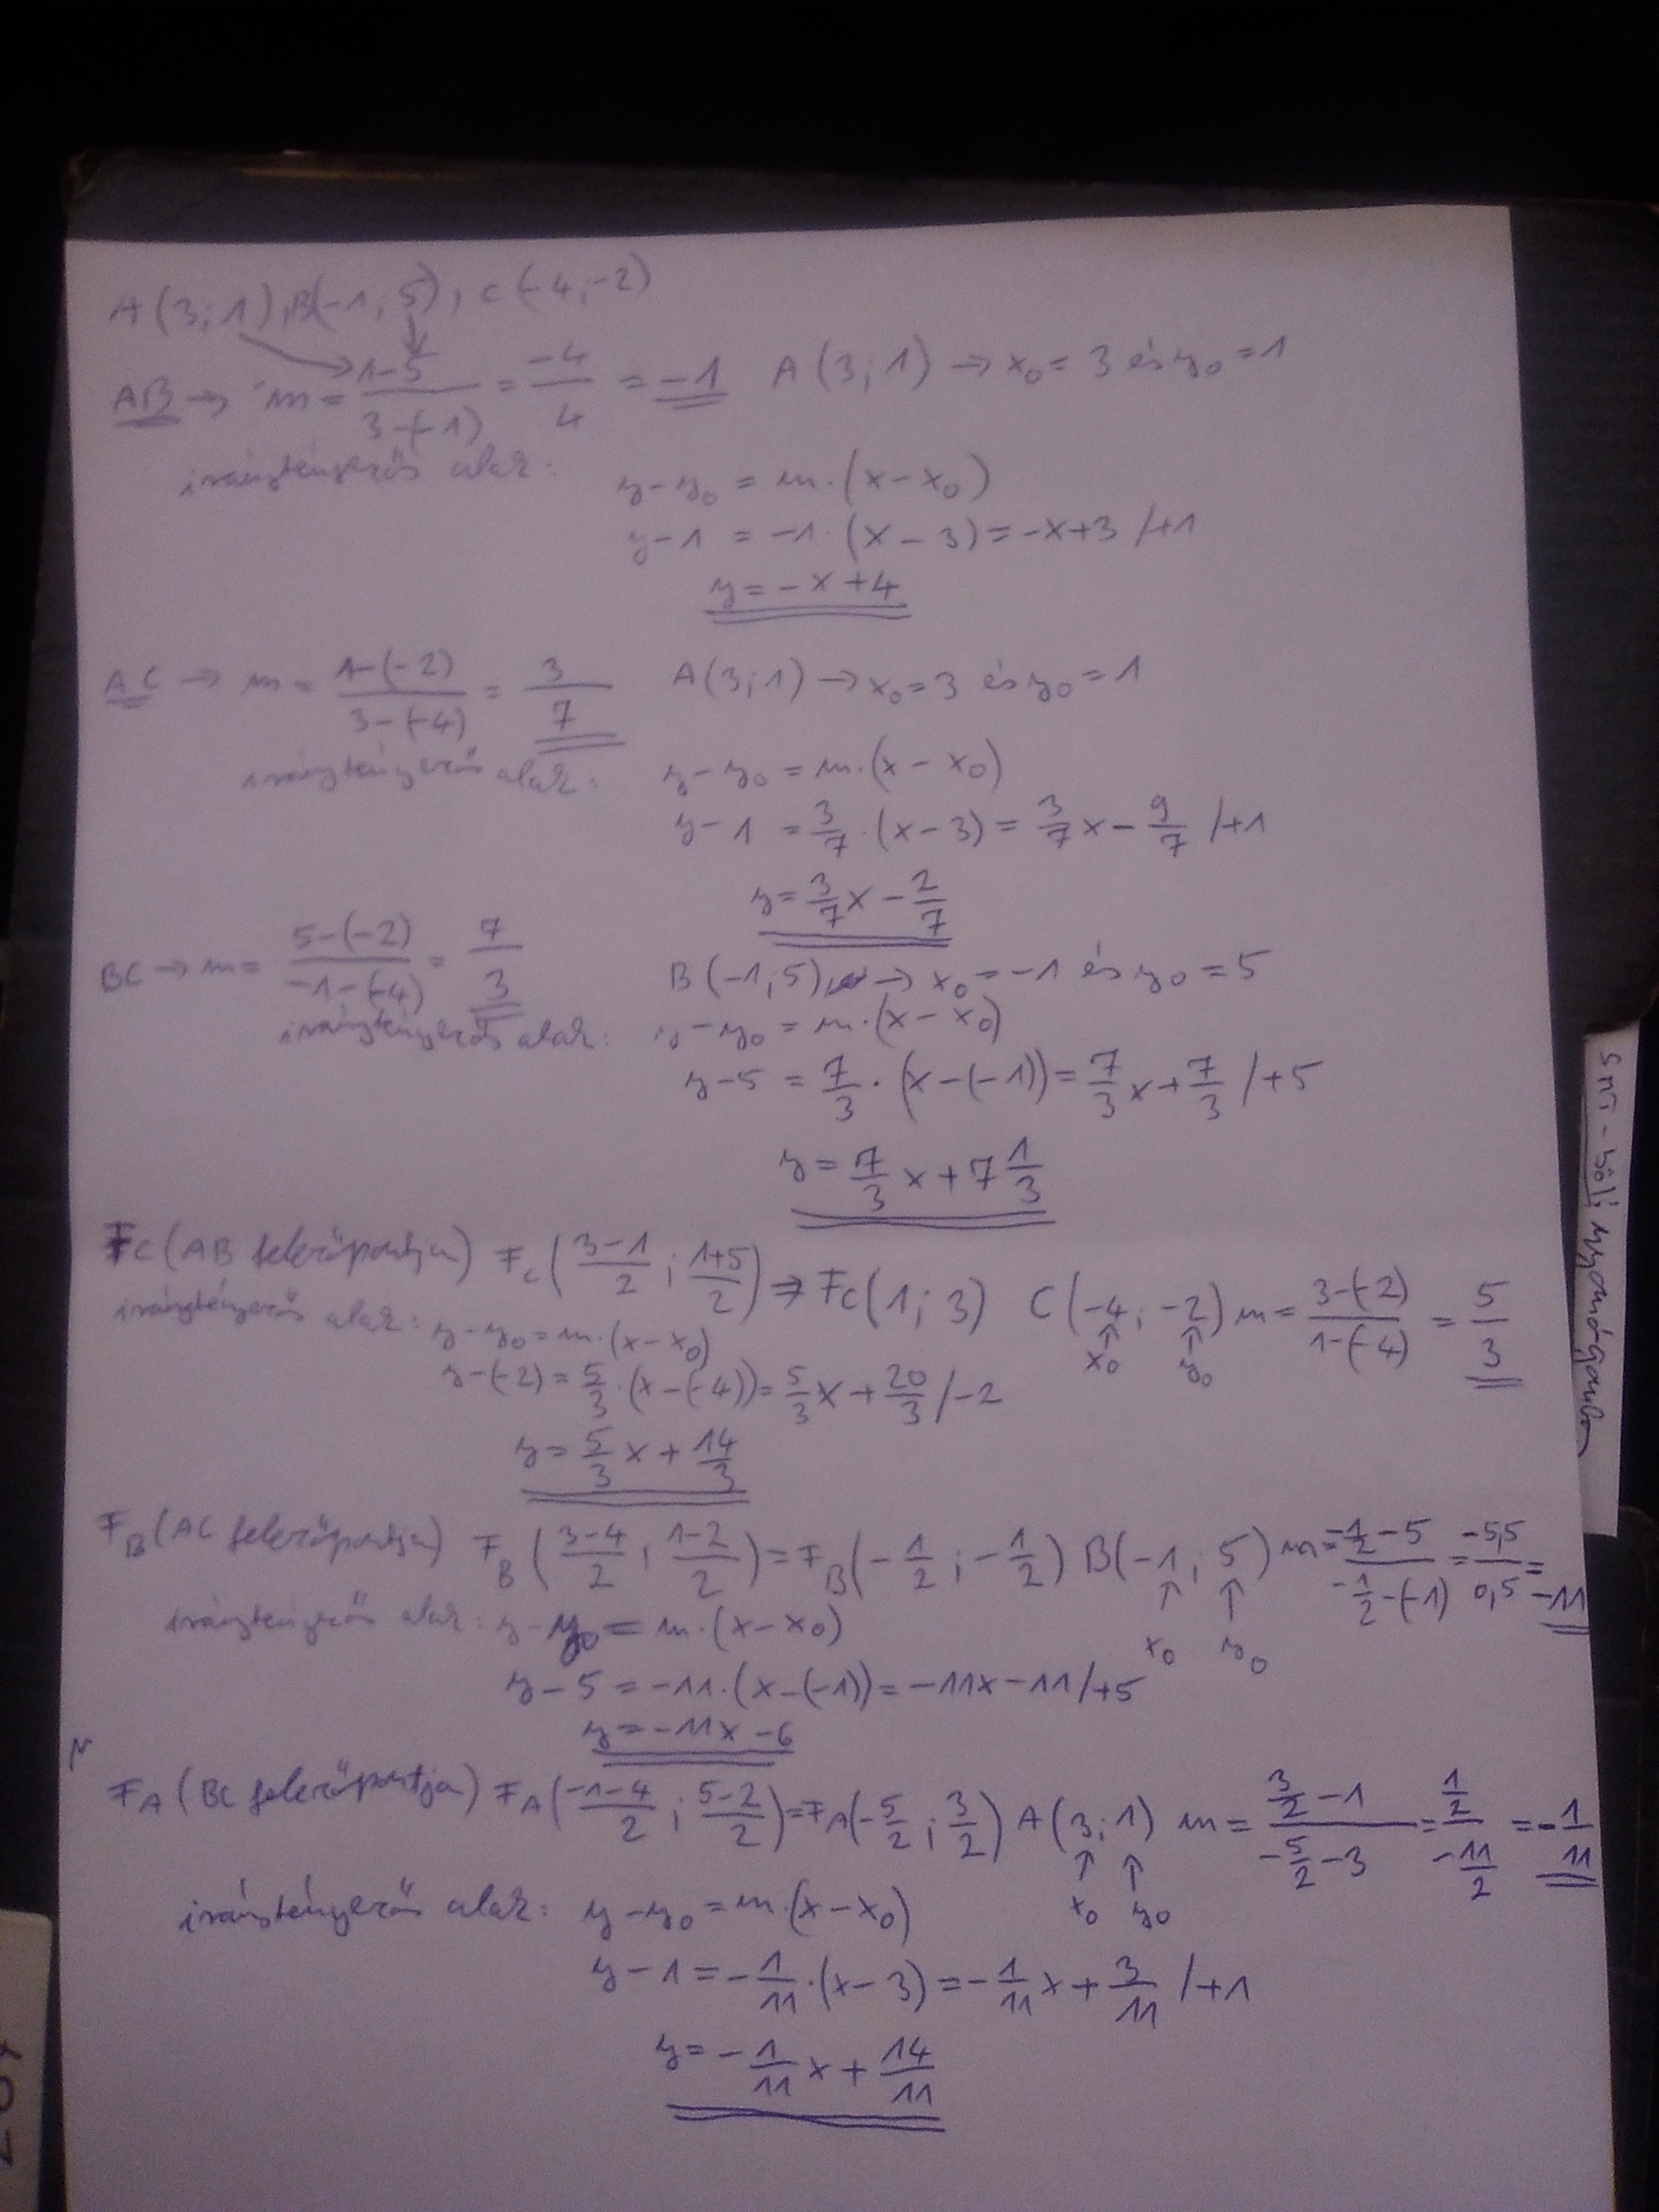 A(3;1), B(-1;5), C(-4;-2)
AB → m = (1-5)/(3-(-1)) = -4/4 = -1 A(3;1) → x₀ = 3 és y₀ = 1
iránytényezős alak: y-y₀ = m·(x-x₀)
y-1 = -1·(x-3) = -x+3 /+1
y = -x+4
AC → m = (1-(-2))/(3-(-4)) = 3/7 A(3;1) → x₀ = 3 és y₀ = 1
iránytényezős alak: y-y₀ = m·(x-x₀)
y-1 = 3/7·(x-3) = 3/7x - 9/7 /+1
y = 3/7x - 2/7
BC → m = (5-(-2))/(-1-(-4)) = 7/3 B(-1;5) → x₀ = -1 és y₀ = 5
iránytényezős alak: y-y₀ = m·(x-x₀)
y-5 = 7/3·(x-(-1)) = 7/3x + 7/3 /+5
y = 7/3x + 7 1/3
FC (AB felezőpontja) Fc((3-1)/2; (1+5)/2) ⇒ Fc(1;3) C(-4;-2) m = (3-(-2))/(1-(-4)) = 5/3
x₀ y₀
iránytényezős alak: y-y₀ = m·(x-x₀)
y-(-2) = 5/3·(x-(-4)) = 5/3x + 20/3 /-2
y = 5/3x + 14/3
FB (AC felezőpontja) FB((3-4)/2; (1-2)/2) = FB(-1/2; -1/2) B(-1;5) m = (-1/2-5)/(-1/2-(-1)) = -5,5/0,5 = -11
iránytényezős alak: y-y₀ = m·(x-x₀)
x₀ y₀
y-5 = -11·(x-(-1)) = -11x-11 /+5
y = -11x-6
FA (BC felezőpontja) FA((-1-4)/2; (5-2)/2) = FA(-5/2; 3/2) A(3;1) m = (3/2-1)/(-5/2-3) = (1/2)/(-11/2) = -1/11
x₀ y₀
iránytényezős alak: y-y₀ = m·(x-x₀)
y-1 = -1/11·(x-3) = -1/11x + 3/11 /+1
y = -1/11x + 14/11